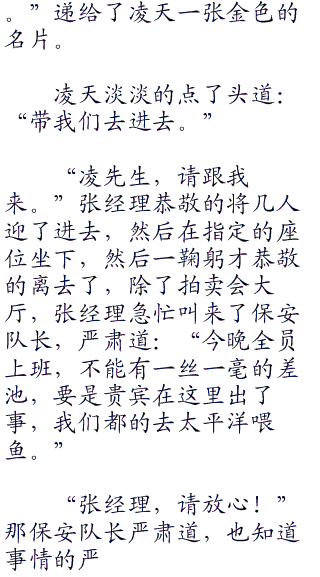 。”递给了凌天一张金色的
名片。
凌天淡淡的点了头道：
“带我们去进去。”
“凌先生，请跟我
来。”张经理恭敬的将几人
迎了进去，然后在指定的座
位坐下，然后一鞠躬才恭敬
的离去了，除了拍卖会大
厅，张经理急忙叫来了保安
队长，严肃道：“今晚全员
上班，不能有一丝一毫的差
池，要是贵宾在这里出了
事，我们都的去太平洋喂
鱼。”
“张经理，请放心！”
那保安队长严肃道，也知道
事情的严